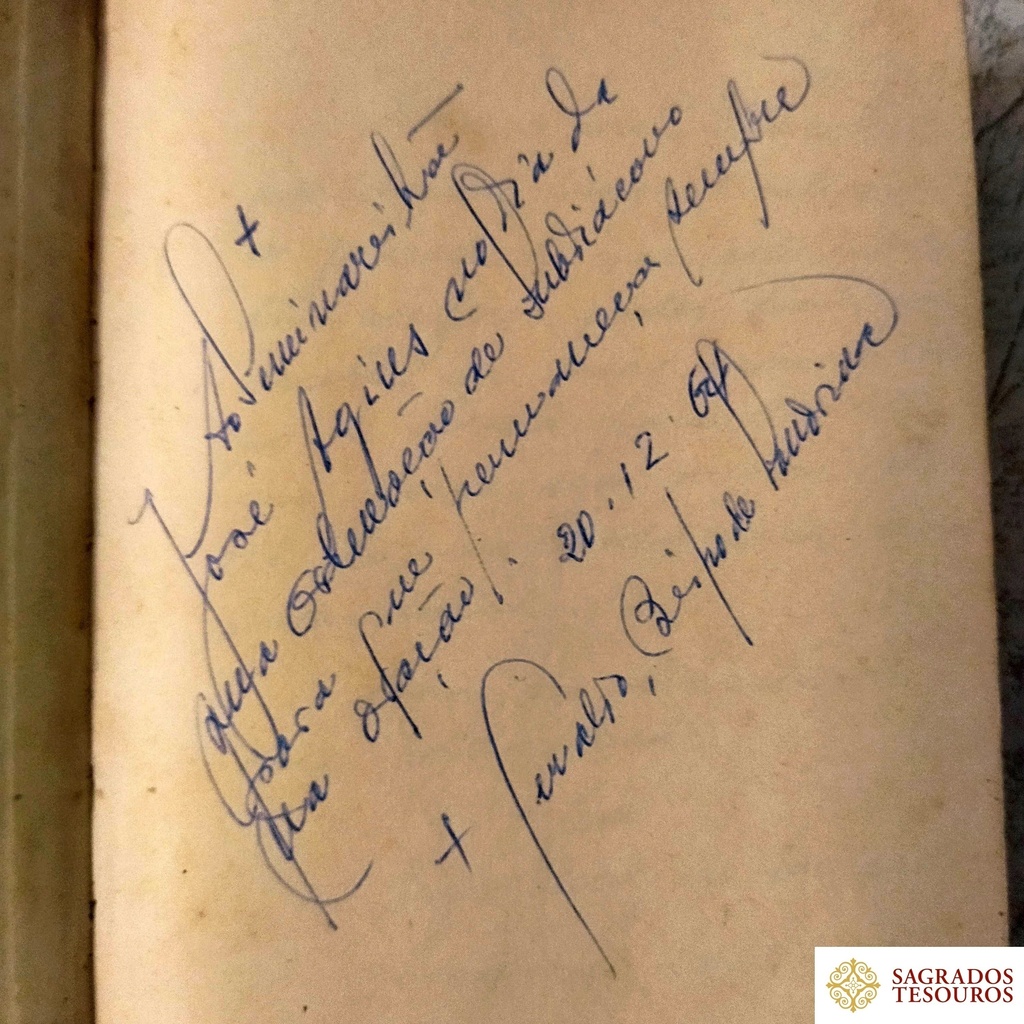 +
Ao Seminarista
José Agius no dia da
sua Ordenação de Subdiácono
para que permaneça sempre
na oração. 20.12.69
+ Geraldo, Bispo de
SAGRADOS
TESOUROS